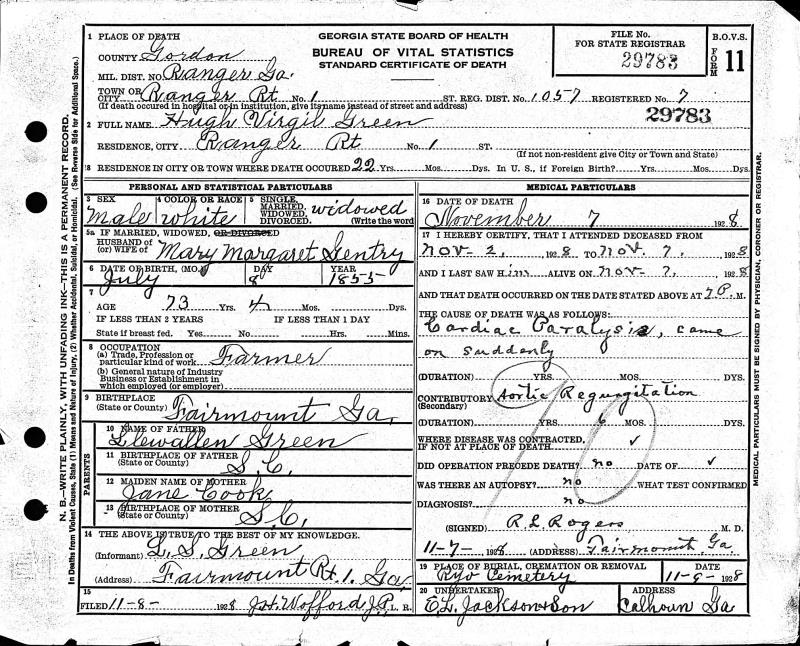 GEORGIA STATE BOARD OF HEALTH
BUREAU OF VITAL STATISTICS
STANDARD CERTIFICATE OF DEATH
FILE No.
FOR STATE REGISTRAR
29783
B.O.V.S.
FORM 11
1 PLACE OF DEATH
COUNTY Gordon
MIL. DIST. NO. Ranger Ga.
TOWN OR CITY Ranger Rt No. 1 ST. REG. DIST. NO. 1057 REGISTERED No. 7
(If death occured in hospital or in institution, give its name instead of street and address)
29783
2 FULL NAME Hugh Virgil Green
RESIDENCE, CITY Ranger Rt No. 1 ST.
(If not non-resident give City or Town and State)
RESIDENCE IN CITY OR TOWN WHERE DEATH OCCURED 22 Yrs. Mos. Dys. In U. S., if Foreign Birth? Yrs. Mos. Dys.
PERSONAL AND STATISTICAL PARTICULARS
3 SEX Male
4 COLOR OR RACE white
5 SINGLE, MARRIED, WIDOWED, DIVORCED. widowed (Write the word
5a IF MARRIED, WIDOWED, OR DIVORCED
HUSBAND OF (or) WIFE OF Mary Margaret Gentry
6 DATE OF BIRTH, (MO.) July DAY 8 YEAR 1855
7 AGE 73 Yrs. 4 Mos. Dys.
IF LESS THAN 2 YEARS IF LESS THAN 1 DAY
State if breast fed. Yes No Hrs. Mins.
8 OCCUPATION
(a) Trade, Profession or particular kind of work Farmer
(b) General nature of Industry
Business or Establishment in
which employed (or employer)
9 BIRTHPLACE
(State or County) Fairmount Ga.
PARENTS
10 NAME OF FATHER
Llewallen Green
11 BIRTHPLACE OF FATHER
(State or County) S.C.
12 MAIDEN NAME OF MOTHER
Jane Cook
13 BIRTHPLACE OF MOTHER
(State or County) S.C.
14 THE ABOVE IS TRUE TO THE BEST OF MY KNOWLEDGE.
(Informant) L. S. Green
(Address) Fairmount Rt. 1. Ga.
15
FILED 11-8- 1928 Jst. Wofford J.P. L. R.
MEDICAL PARTICULARS
16 DATE OF DEATH
November 7 1928
17 I HEREBY CERTIFY, THAT I ATTENDED DECEASED FROM
Nov- 2, 1928 TO Nov. 7, 1928
AND I LAST SAW Him ALIVE ON Nov- 7, 1928
AND THAT DEATH OCCURRED ON THE DATE STATED ABOVE AT 7 P. M.
THE CAUSE OF DEATH WAS AS FOLLOWS:
Cardiac Paralysis, came
on suddenly
(DURATION) YRS. MOS. DYS.
CONTRIBUTORY Aortic Regurgitation
(Secondary)
(DURATION) YRS. 6 MOS. DYS.
WHERE DISEASE WAS CONTRACTED,
IF NOT AT PLACE OF DEATH ✓
DID OPERATION PRECEDE DEATH? no DATE OF ✓
WAS THERE AN AUTOPSY? no WHAT TEST CONFIRMED
DIAGNOSIS? no
(SIGNED) R. L. Rogers M. D.
11-7- 1928 (ADDRESS) Fairmount, Ga.
19 PLACE OF BURIAL, CREMATION OR REMOVAL DATE
Ryo Cemetery 11-9- 1928
20 UNDERTAKER ADDRESS
E.L. Jackson & Son Calhoun Ga
N. B.—WRITE PLAINLY, WITH UNFADING INK—THIS IS A PERMANENT RECORD.
In Deaths from Violent Causes, State (1) Means and Nature of Injury, (2) Whether Accidental, Suicidal, or Homicidal. (See Reverse Side for Additional Space.)
MEDICAL PARTICULARS MUST BE SIGNED BY PHYSICIAN, CORONER OR REGISTRAR.